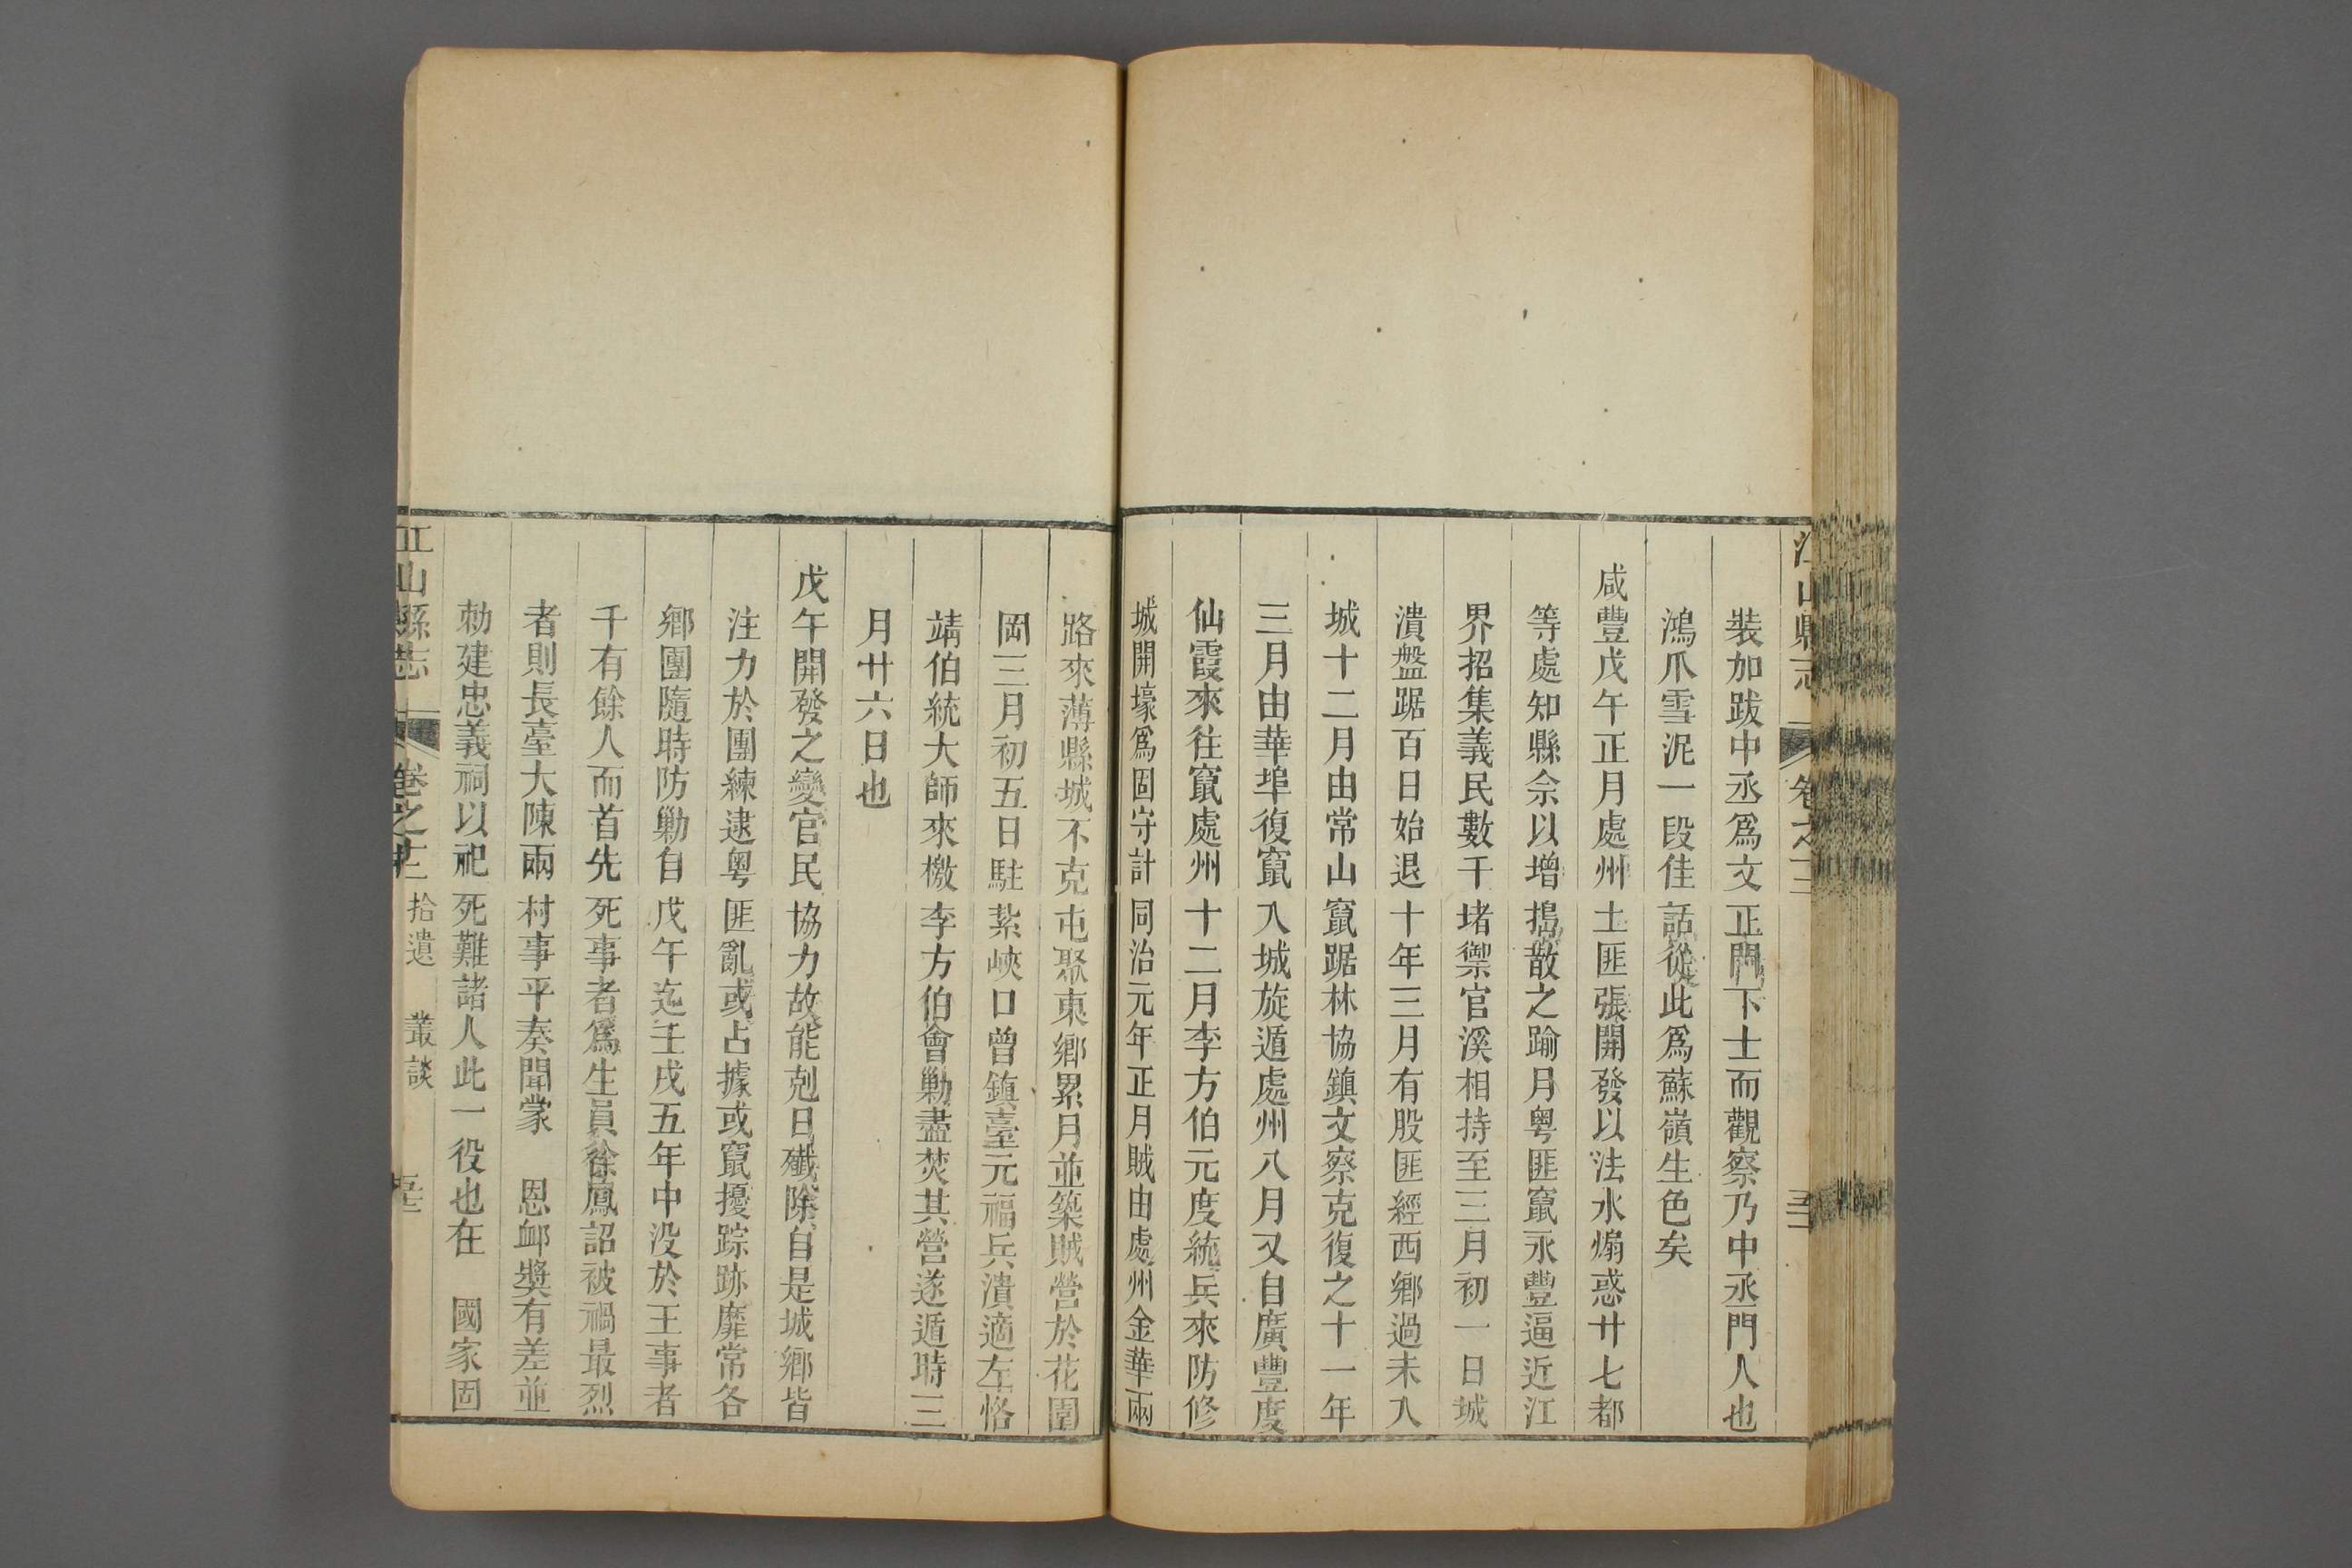 江山縣志 卷之十二
裝加跋中丞爲文正門下士而觀察乃中丞門人也
鴻爪雪泥一段佳話從此爲蘇嶺生色矣
咸豐戊午正月處州土匪張開發以法水煽惑廿七都
等處知縣佘以增搗散之踰月粤匪竄永豐逼近江
界招集義民數千堵禦官溪相持至三月初一日城
潰盤踞百日始退十年三月有股匪經西鄉過未入
城十二月由常山竄踞林協鎮文察克復之十一年
三月由華埠復竄入城旋遁處州八月又自廣豐度
仙霞來往竄處州十二月李方伯元度統兵來防修
城開壕爲固守計同治元年正月賊由處州金華兩
路來薄縣城不克屯聚東鄉累月並築賊營於花園
岡三月初五日駐紮峽口曾鎮臺元福兵潰適左恪
靖伯統大師來檄李方伯會勦盡焚其營遂遁時三
月廿六日也
戊午開發之變官民協力故能剋日殲除自是城鄉皆
注力於團練逮粤匪亂或占據或竄擾踪跡靡常各
鄉團隨時防勦自戊午迄壬戌五年中没於王事者
千有餘人而首先死事者爲生員徐鳳詔被禍最烈
者則長臺大陳兩村事平奏聞蒙 恩卹奬有差並
勅建忠義祠以祀死難諸人此一役也在 國家固
江山縣志 卷之十二 拾遺 叢談